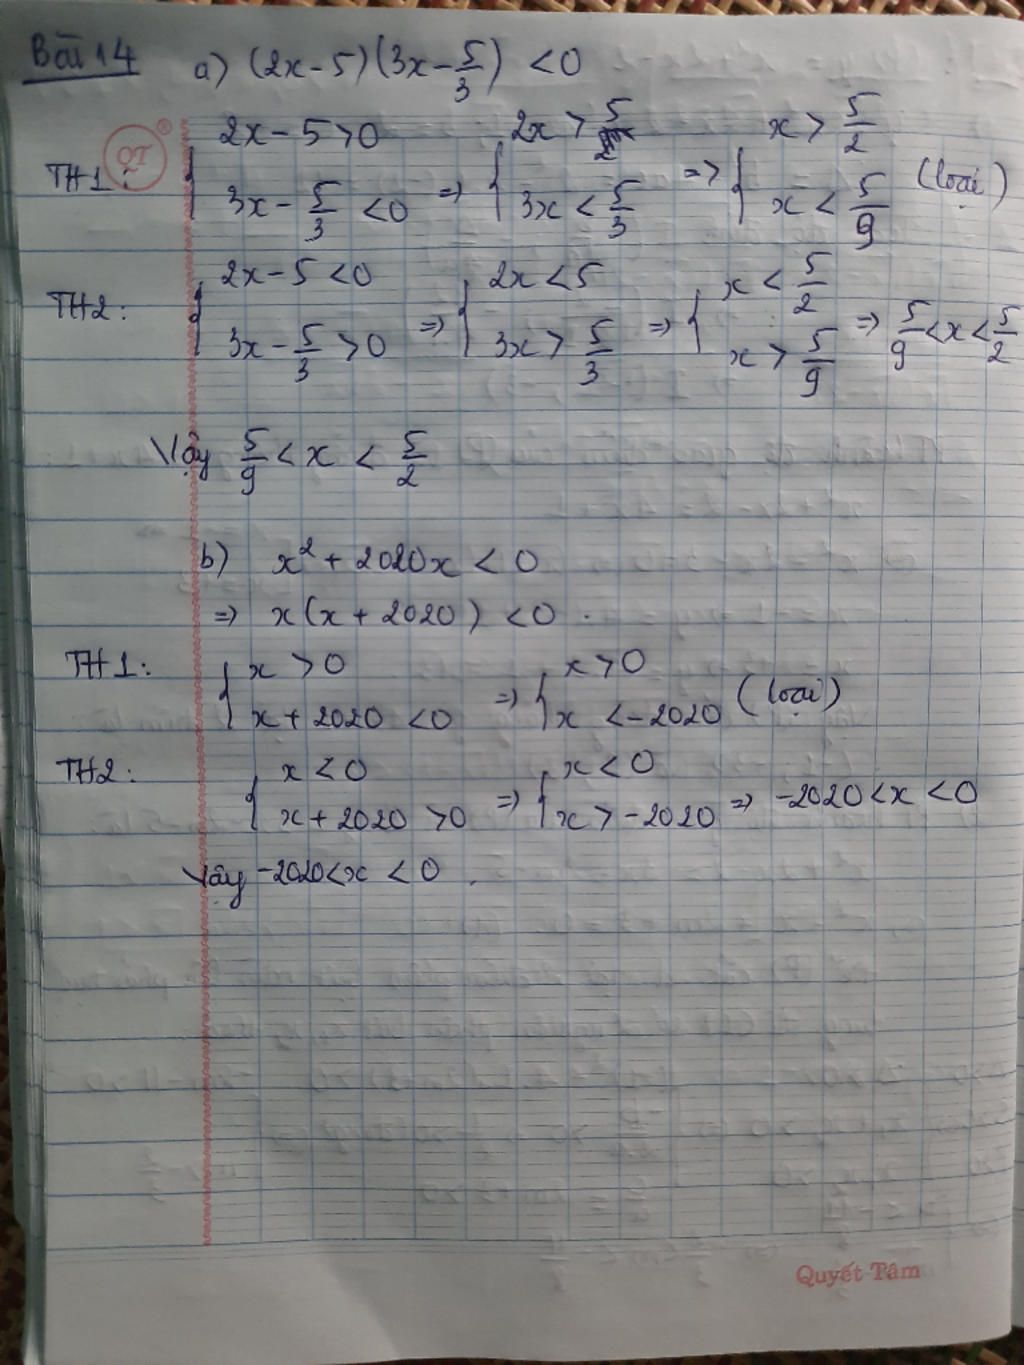 Bài 14 a) (2x-5)(3x-5/3) <0
QT ®
TH1: { 2x-5>0 ; 3x-5/3 <0 => { 2x>5 ; 3x<5/3 => { x>5/2 ; x<5/9 (loại)
TH2: { 2x-5<0 ; 3x-5/3 >0 => { 2x<5 ; 3x>5/3 => { x<5/2 ; x>5/9 => 5/9<x<5/2
Vậy 5/9 < x < 5/2
b) x² + 2020x < 0
=> x(x+2020) <0.
TH1: { x>0 ; x+2020 <0 => { x>0 ; x <-2020 (loại)
TH2: { x<0 ; x+2020 >0 => { x<0 ; x>-2020 => -2020<x<0
Vậy -2020<x<0.
Quyết Tâm